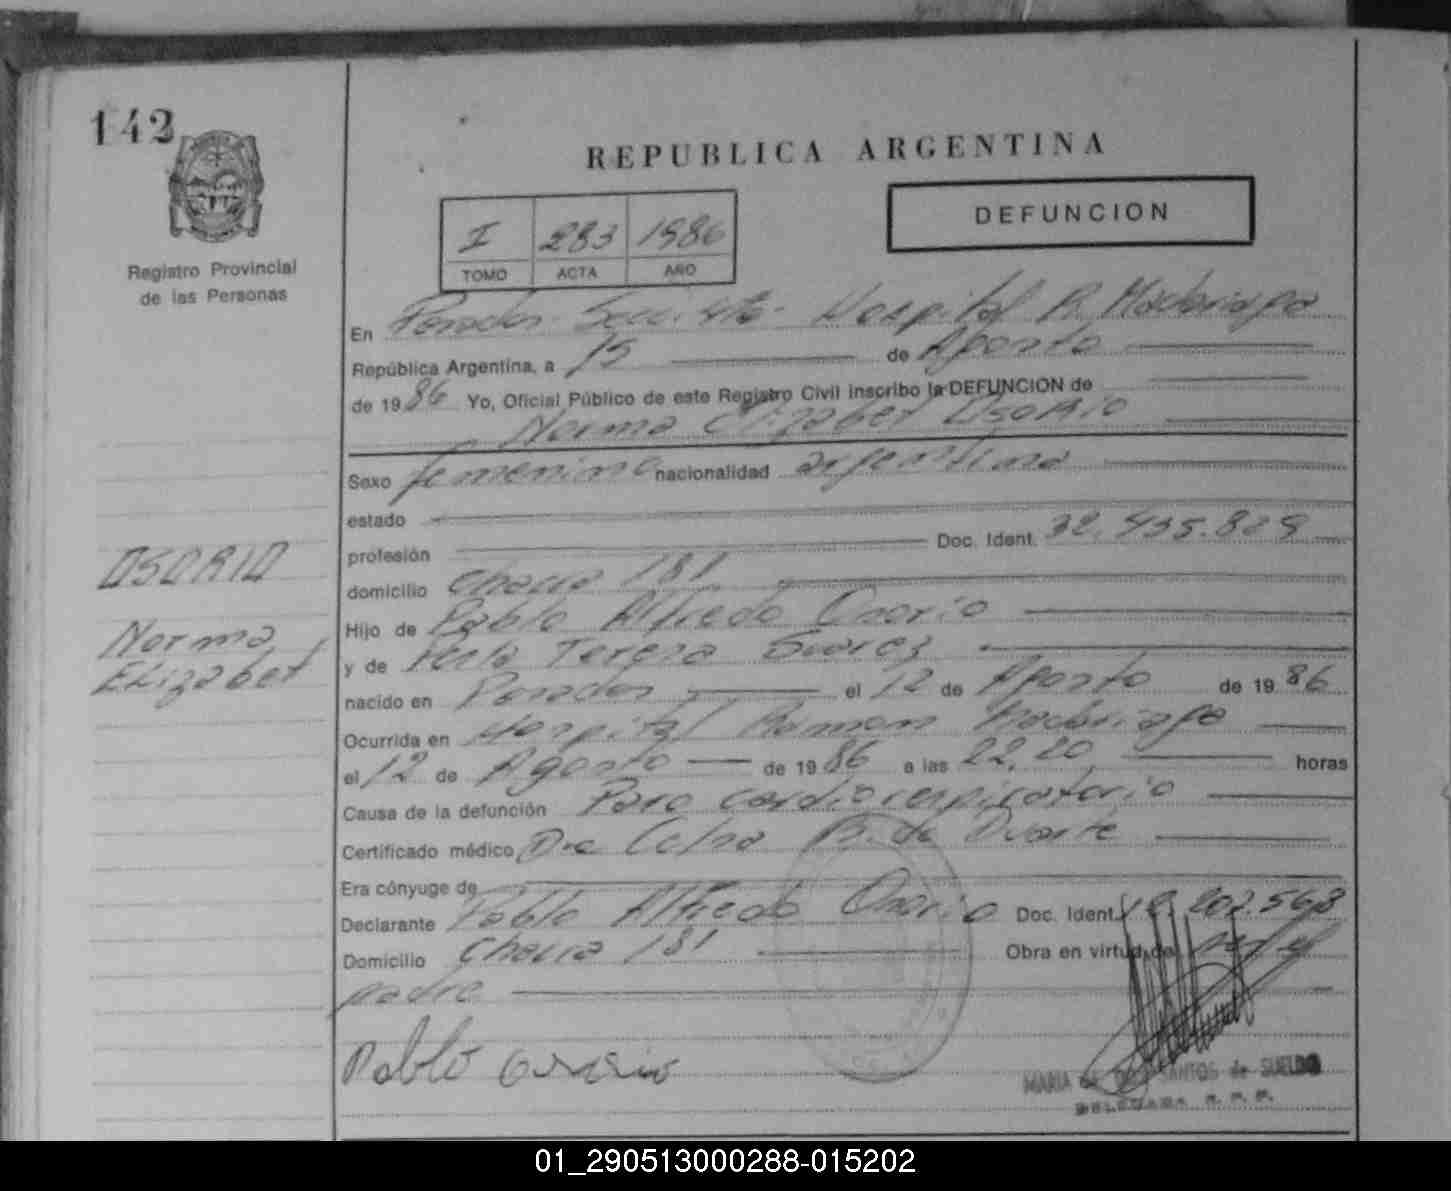 142
REPUBLICA ARGENTINA
DEFUNCION
I 283 1986
TOMO ACTA AÑO
Registro Provincial
de las Personas
En Posadas Secc. 4ta. Hospital R. Madariaga
República Argentina, a 15 de Agosto
de 1986 Yo, Oficial Público de este Registro Civil inscribo la DEFUNCION de
Norma Elizabet OSORIO
Sexo femenino nacionalidad argentina
estado
profesión Doc. Ident. 32.435.829
OSORIO
Norma
Elizabet
domicilio Chacra 181
Hijo de Pablo Alfredo Osorio
y de Teresa Suarez
nacido en Posadas el 12 de Agosto de 1986
Ocurrida en Hospital Ramon Madariaga
el 12 de Agosto de 1986 a las 22,20 horas
Causa de la defunción Paro cardiorespiratorio
Certificado médico Dra Celsa B. de Duarte
Era cónyuge de
Declarante Pablo Alfredo Osorio Doc. Ident. 202.568
Domicilio Chacra 181 Obra en virtud de ser el
padre
Pablo Osorio
MARIA SANTOS de SUELDO
DELEGADA R. P. P.
01_290513000288-015202